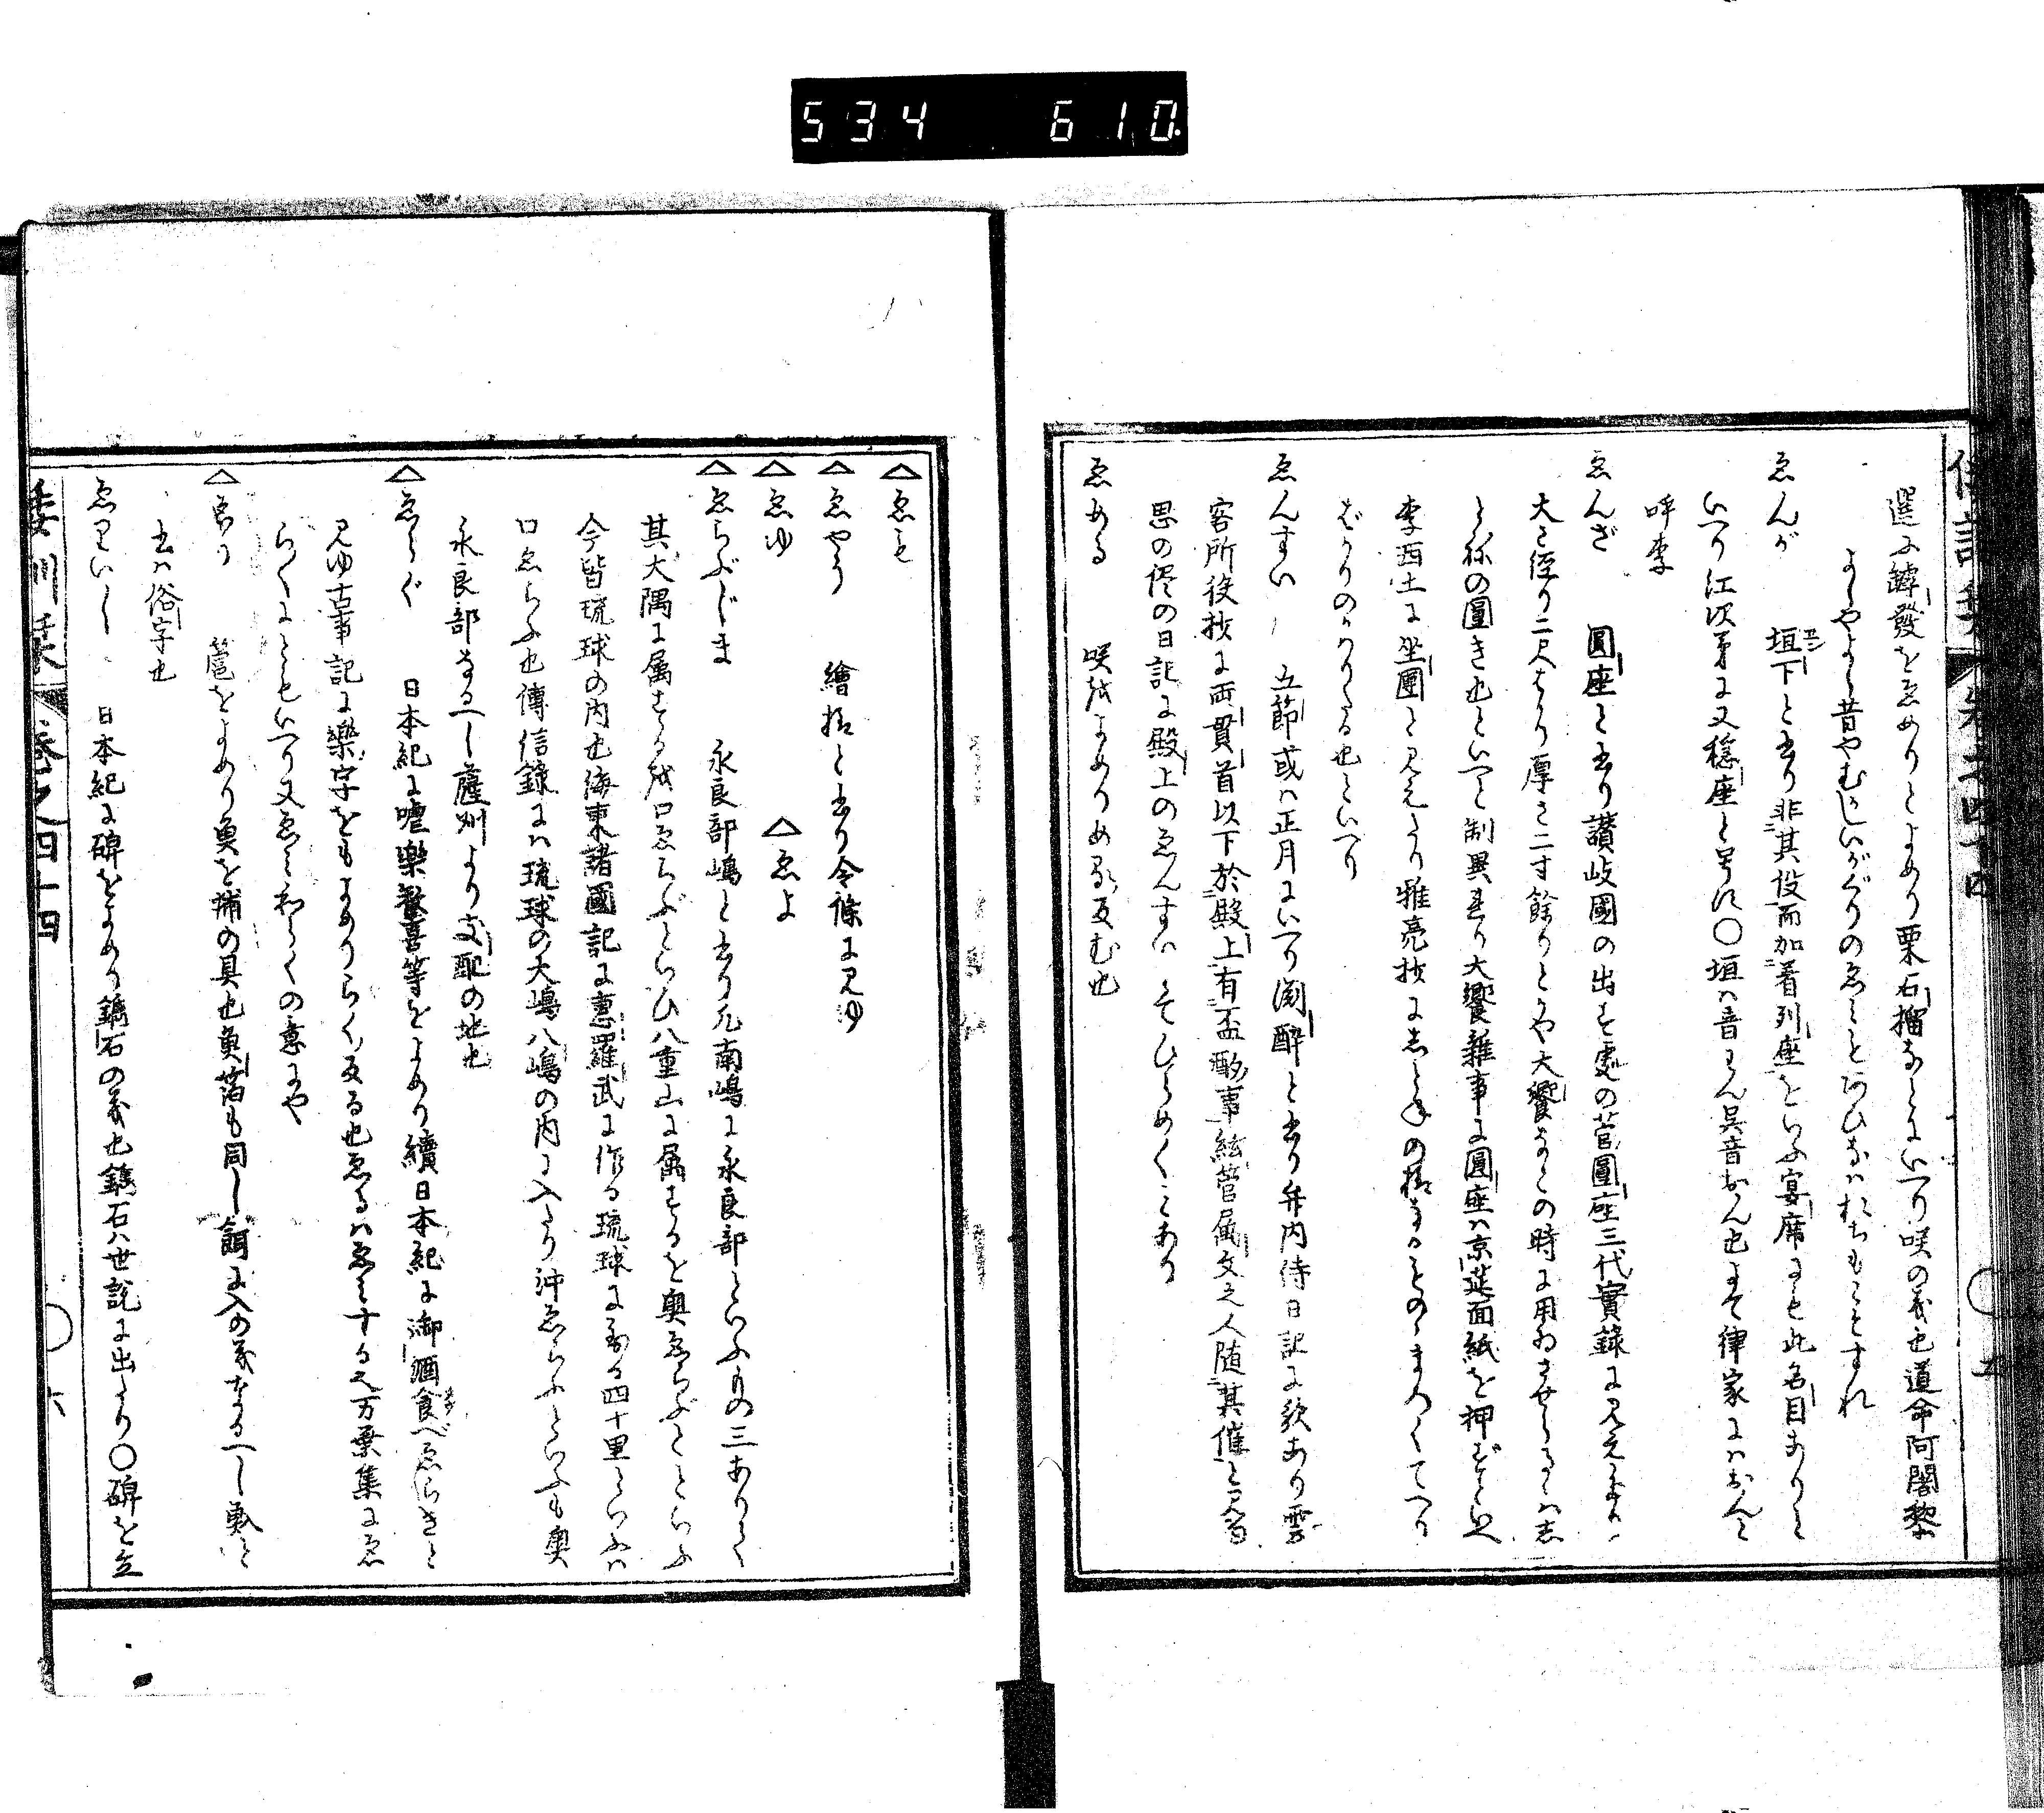 534 610.
選に罅發をゑめりとよめり栗石榴なとにいへり咲の義也道命阿闍黎
よしやよし昔やむかしいがぐりのゑみとあひなはおちもこそすれ
ゑんが 垣下と書り非其役而加着列座をいふ宴席にも此名目ありと
いへり江次第に又穏座と号す〇垣は音ゑん呉音おん也よて律家にはおんと
呼李
ゑんざ 圓座と書り讃岐國の出す處の菅圓座三代實録に見えたり
大さ径り二尺はかり厚さ二寸餘りとかや大饗なとの時に用ゐさせらるゝは志
とねの圓き也といへと制異なり大饗雜事に圓座は京莚面紙を押すといへ
李西土に坐團と見えたり雅亮抄にしとねの様なることのまろくてへり
ばかりのゝりたる也といへり
ゑんすい 五節或は正月にいへり淵酔と書り弁内侍日記に歌あり雲
客所役抄に両貫首以下於殿上有盃酌事絃管属文之人随其催と見ゆ
思の侭の日記に殿上のゑんすいとてひしめくとあり
ゑめる 咲をよめりめる反む也
△ゑも
△ゑやう 繪様と書り令條に見ゆ
△ゑゆ △ゑよ
△ゑらぶじま 永良部嶋と書り凡南嶋に永良部といふもの三ありて
其大隅に属するを口ゑらぶといひ八重山に属するを奥ゑらぶといふ
今皆琉球の内也海東諸國記に惠羅武に作る琉球に至る四十里といふは
口ゑらふ也傳信録には琉球の大嶋八嶋の内に入たり沖ゑらふといふも奥
永良部なるへし薩州より支配の地也
△ゑらぐ 日本紀に㖸樂歡喜等をよめり續日本紀に御酒食べゑらきと
見ゆ古事記に樂字をもよめりらく反る也ゑるはゑみする也万葉集にゑ
らゝくにともいへり又ゑみ和らくの意にや
△ゑり 篭をよめり魚を捕の具也魚箔も同し餌に入の義なるへし
書は俗字也
ゑりいし 日本紀に碑をよめり鐫石の義也鐫石は世説に出たり〇碑を立
倭訓栞 巻之四十四 六